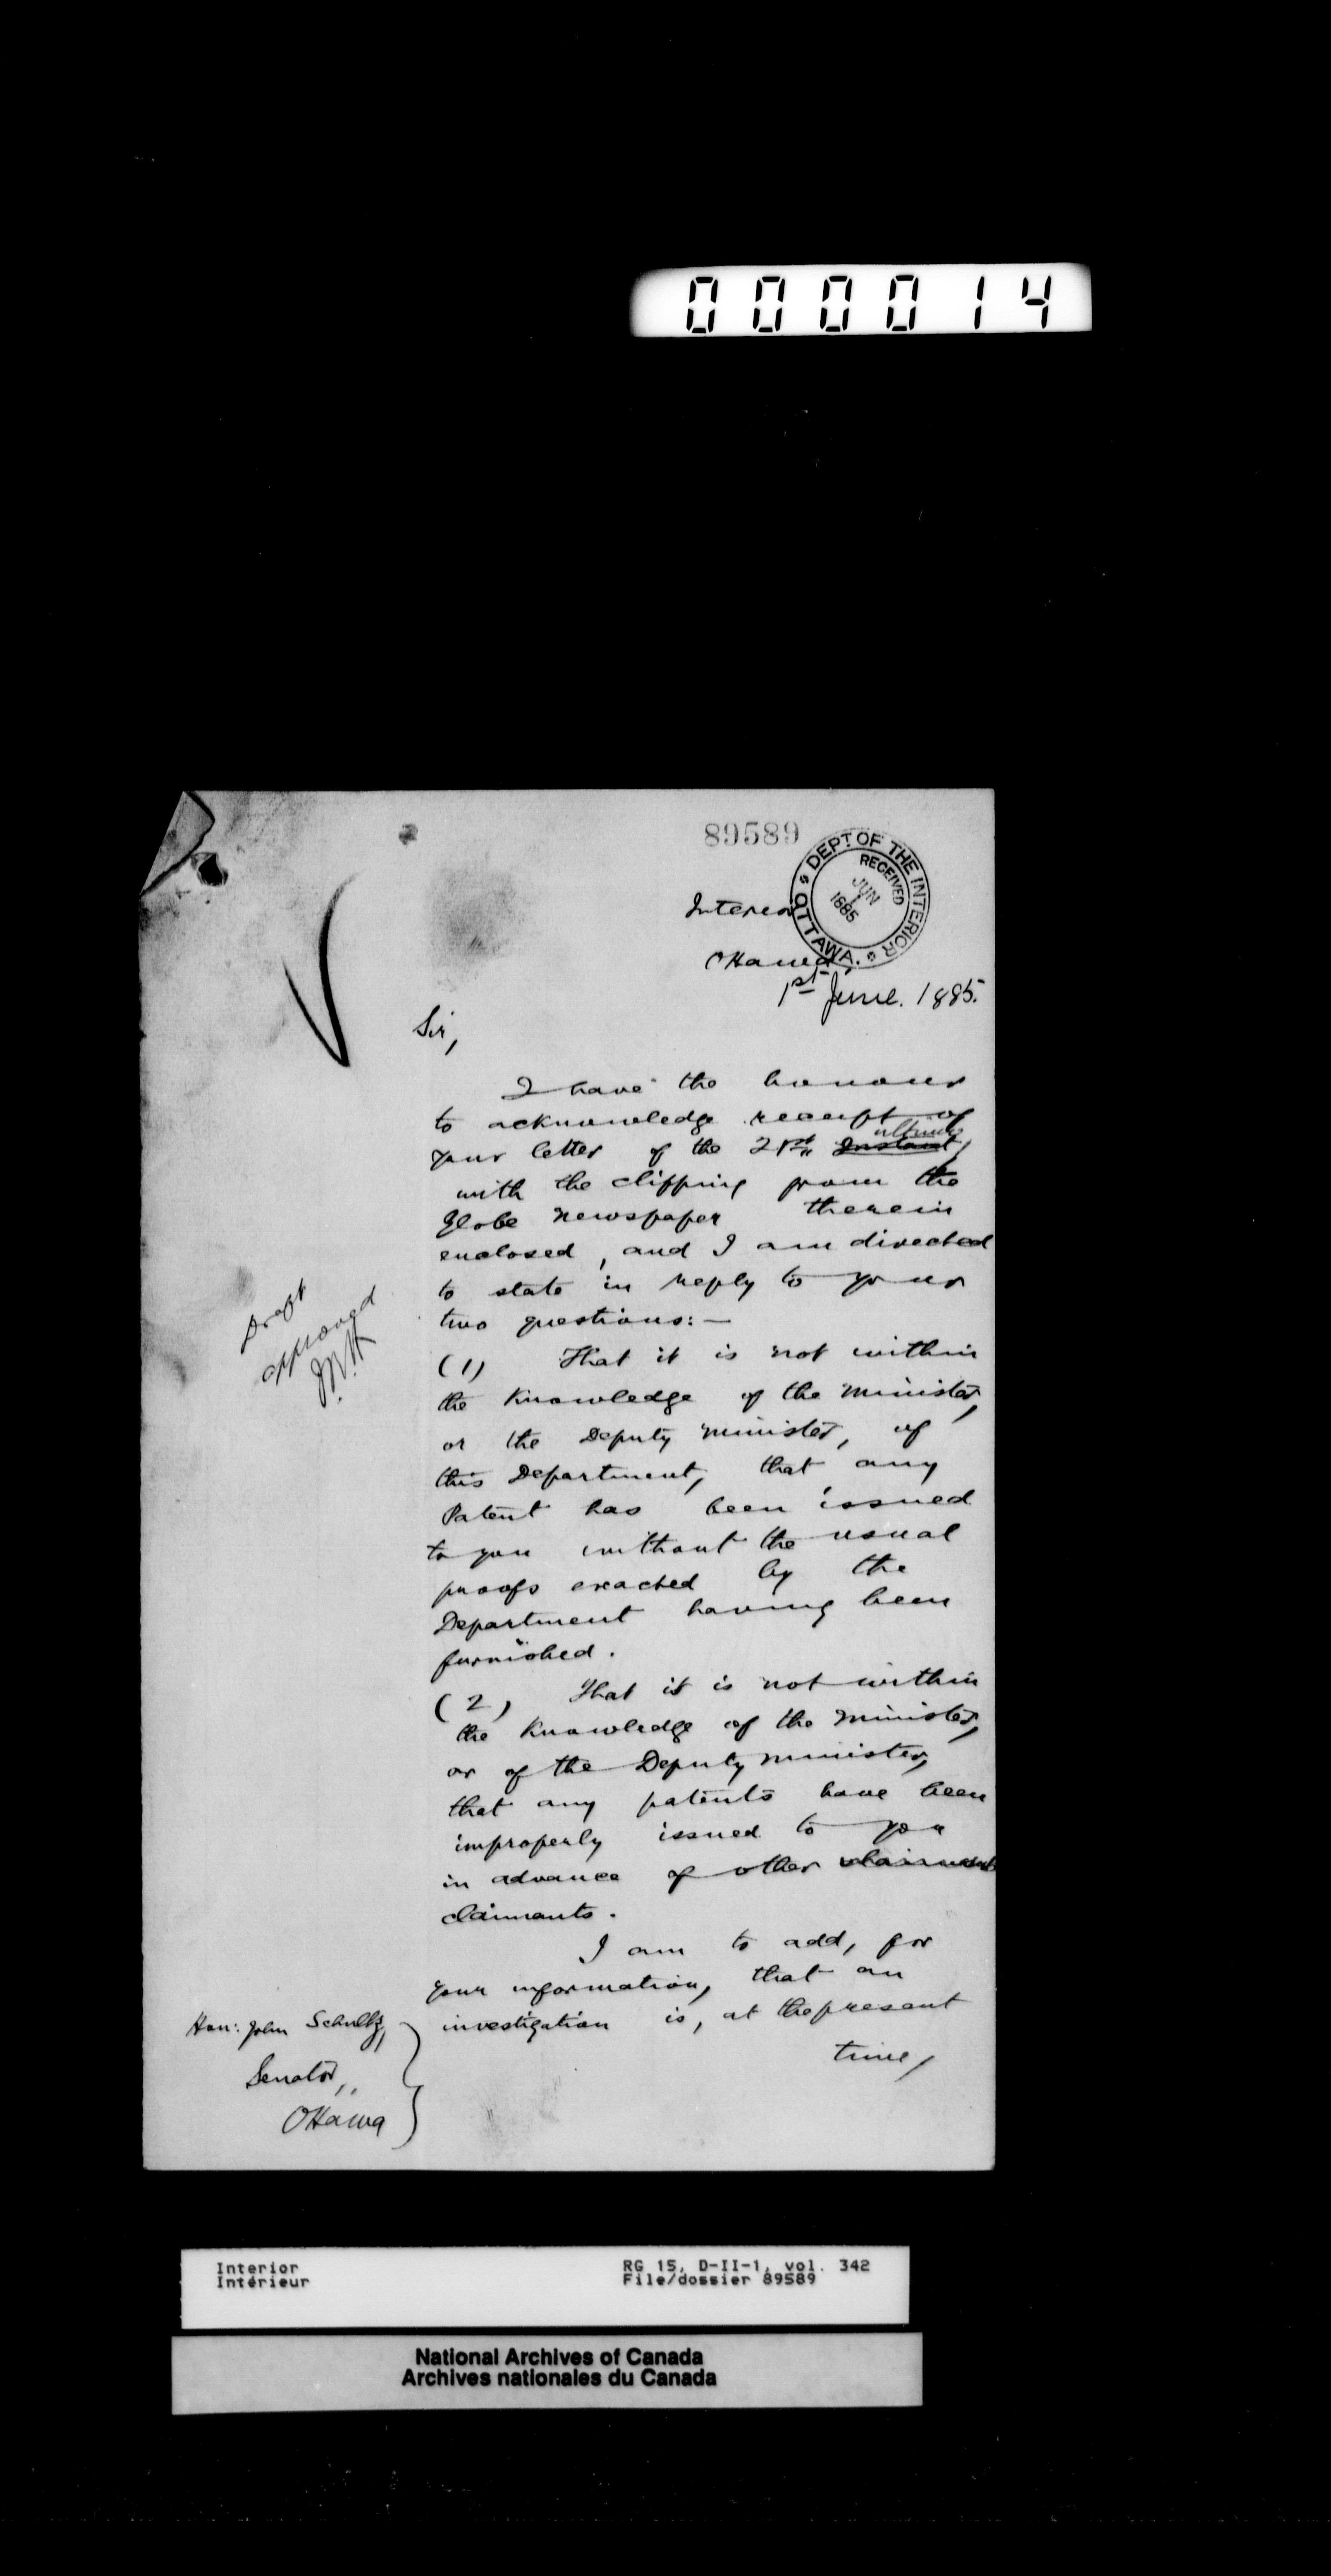 000014
89589
DEPT OF THE INTERIOR
RECEIVED
JUN
1
1885
OTTAWA.
Interior
Ottawa
1st June. 1885.
Sir,
I have the honour
to acknowledge receipt of
your letter of the 21st Instant ultimo,
with the clipping from the
Globe newspaper therein
enclosed, and I am directed
to state in reply to your
two questions:—
(1) That it is not within
the knowledge of the Minister,
or the Deputy Minister, of
this Department, that any
Patent has been issued
to you without the usual
proofs exacted by the
Department having been
furnished.
(2) That it is not within
the knowledge of the Minister,
or of the Deputy Minister,
that any patents have been
improperly issued to you
in advance of other claimants
claimants.
I am to add, for
your information, that an
investigation is, at the present
time,
Draft
approved
Hon: John Schultz,
Senator,
Ottawa
Interior
Intérieur
RG 15, D-II-1, vol. 342
File/dossier 89589
National Archives of Canada
Archives nationales du Canada